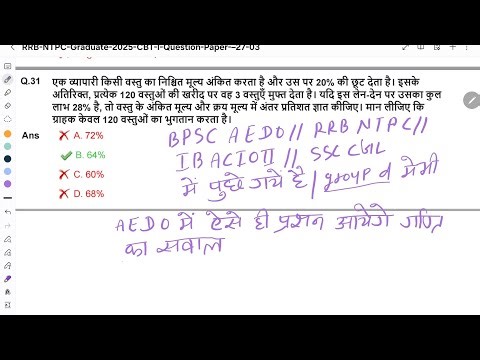 RRB-NTPC-Graduate-2025-CBT-I-Question-Paper-–27-03
Q.31 एक व्यापारी किसी वस्तु का निश्चित मूल्य अंकित करता है और उस पर 20% की छूट देता है। इसके
अतिरिक्त, प्रत्येक 120 वस्तुओं की खरीद पर वह 3 वस्तुएँ मुफ्त देता है। यदि इस लेन-देन पर उसका कुल
लाभ 28% है, तो वस्तु के अंकित मूल्य और क्रय मूल्य में अंतर प्रतिशत ज्ञात कीजिए। मान लीजिए कि
ग्राहक केवल 120 वस्तुओं का भुगतान करता है।
Ans A. 72%
B. 64%
C. 60%
D. 68%
BPSC AEDO // RRB NTPC //
IB ACIO II // SSC CGL
में पुछे गये है / group d में भी
AEDO में ऐसे ही प्रशन आयेंगे गणित
का सवाल